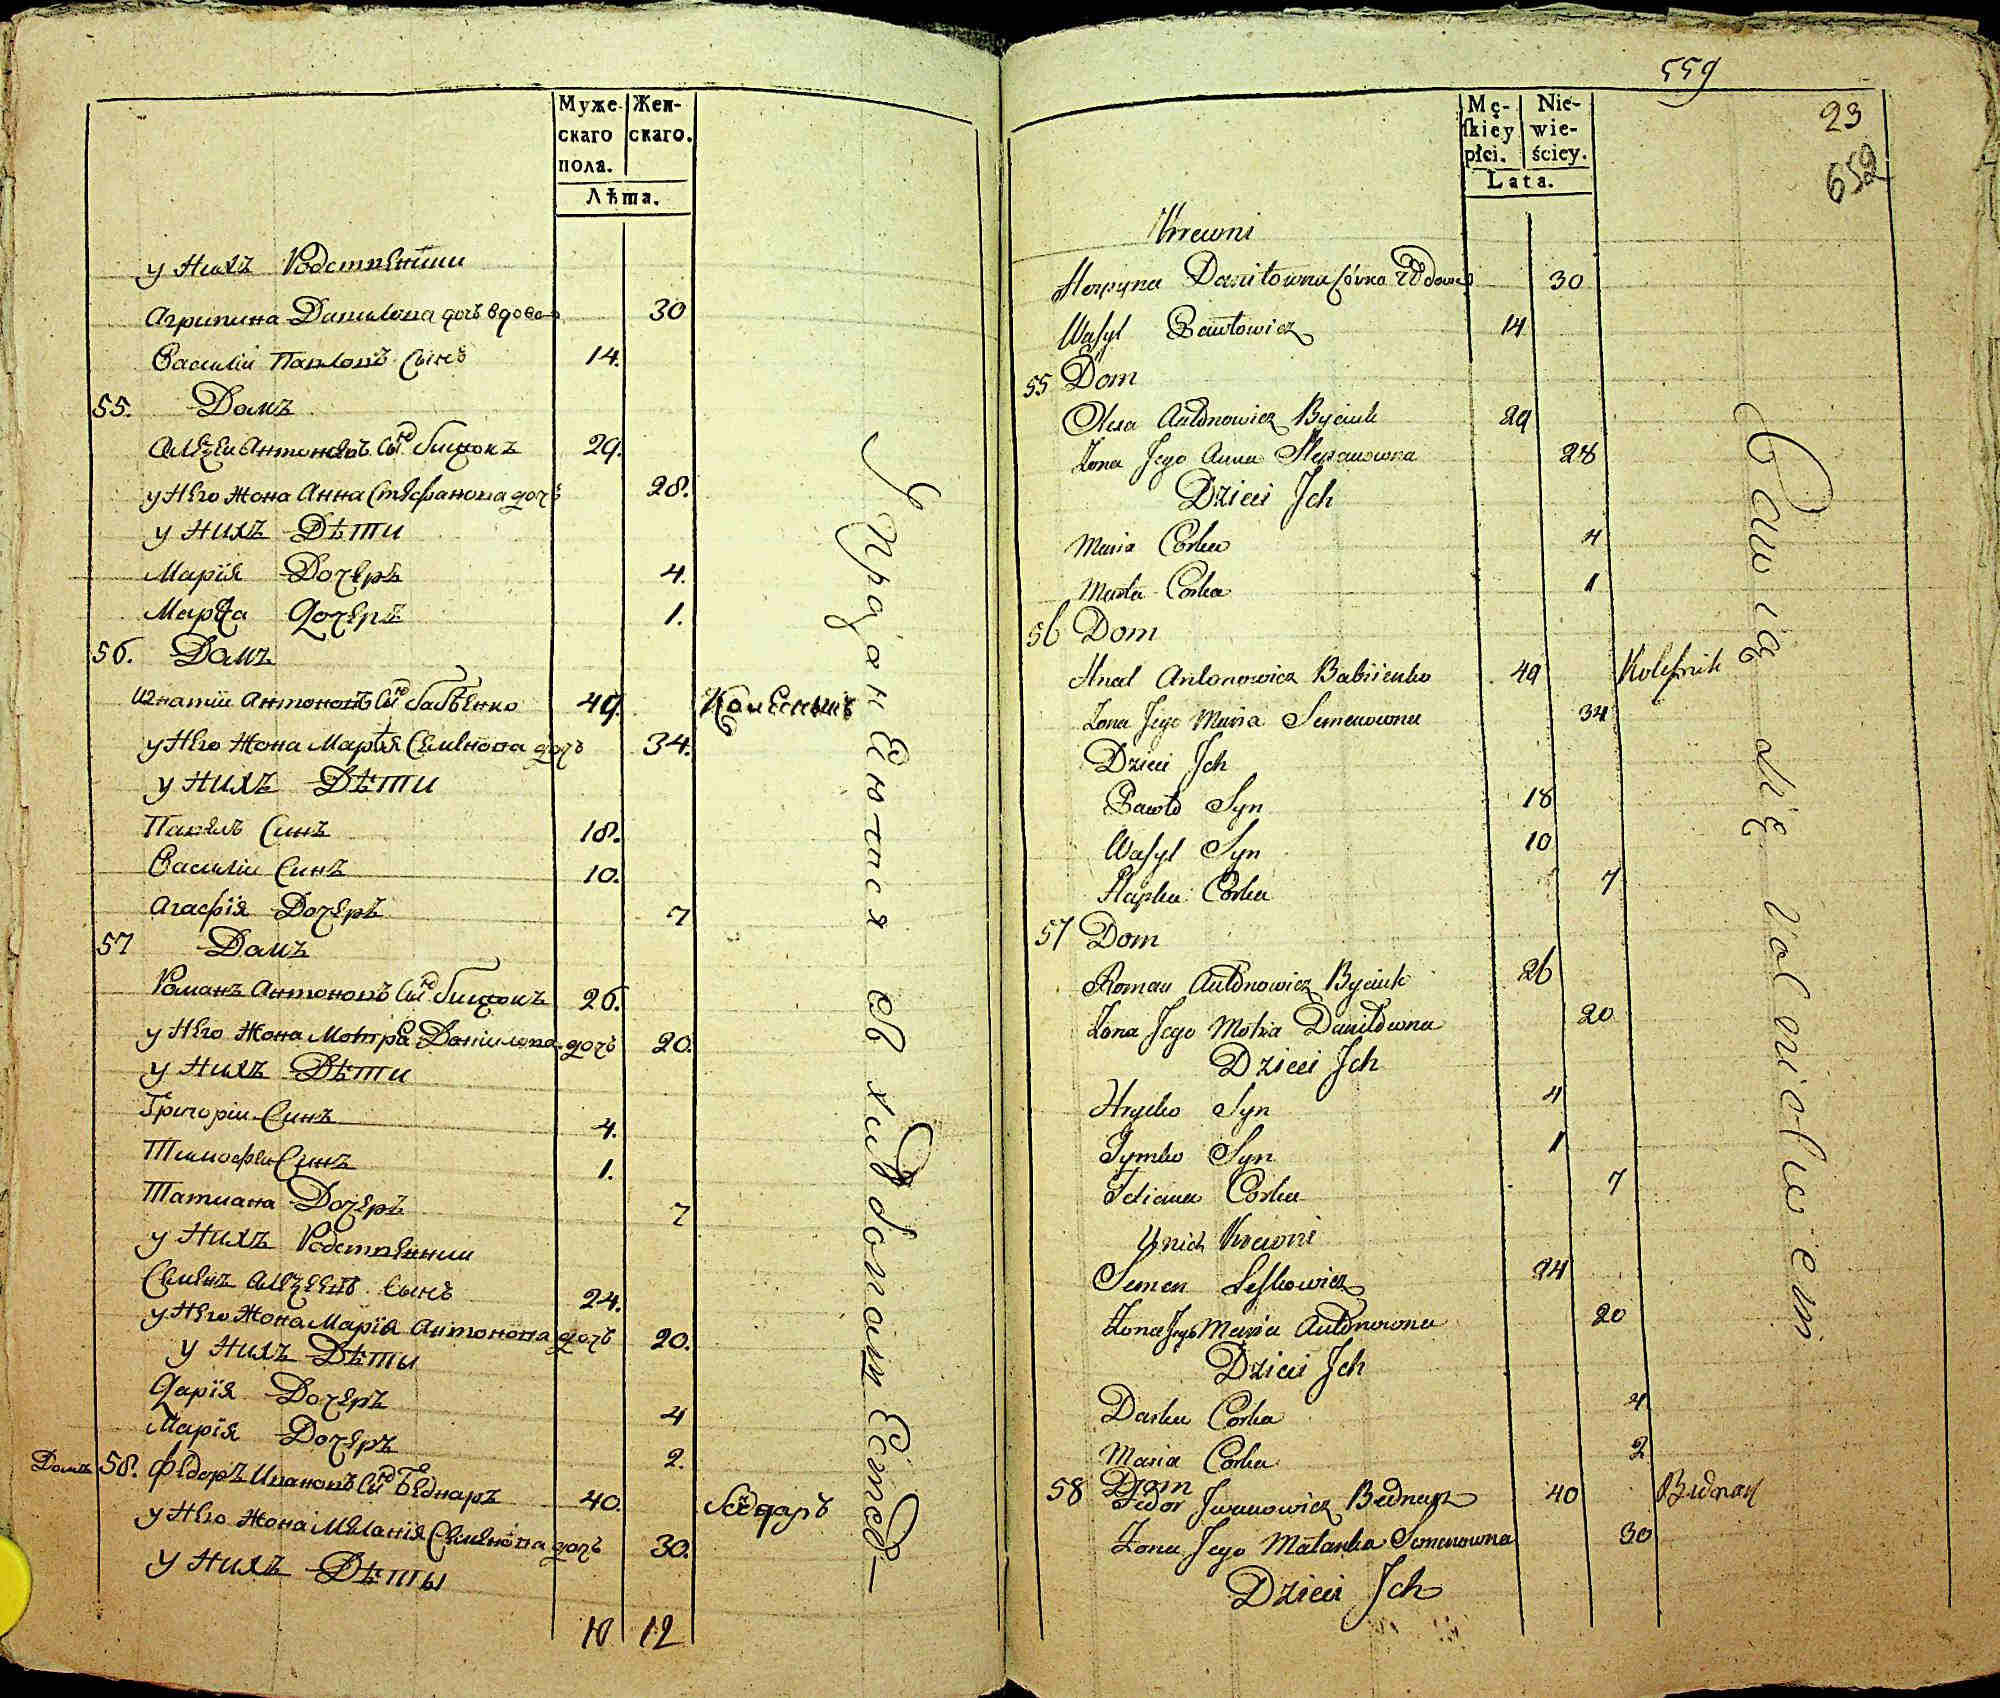 Муже- Жен-
скаго скаго.
пола.
Лѣта.
у Нихъ Родственики
Агрипина Данилова дочь вдова 30
Василіи Павловъ Сынъ 14.
55. Домъ
Алекѣи Антоновъ Сынъ Бицюкъ 29.
у Него Жона Анна Стефанова дочь 28.
у Нихъ Дѣти
Марія Дочерь 4.
Марѳа Дочерь 1.
56. Домъ
Игнатіи Антоновъ Сынъ Бабѣенко 49. Колесникъ
у Него Жона Марія Семенова дочь 34.
у Нихъ Дѣти
Павелъ Синъ 18.
Василіи Синъ 10.
Агафія Дочерь 7
57 Домъ
Романъ Антоновъ Сынъ Бицюкъ 26.
у Него Жона Мотра Данилова дочь 20.
у Нихъ Дѣти
Григоріи Синъ 4.
Тимофеи Синъ 1.
Татиана Дочерь 7
у Нихъ Родственники
Семенъ Алекѣевъ Сынъ 24.
у Него Жона Марія Антонова дочь 20.
у Нихъ Дѣти
Дарія Дочерь 4
Марія Дочерь 2.
Домъ 58. Федоръ Ивановъ Сынъ Беднаръ 40. Бедн­аръ
у Него Жона Меланія Семенова дочь 30.
у Нихъ Дѣты
10 12
Упражнеются въ хл­ебопашестве
559
23
652
Mę- Nie-
ſkiey wie-
płci. ściey.
Lata.
Krewni
Horpyna Daniłowna Córka Wdowa 30
Wasyl Pawłowicz 14
55 Dom
Olexa Antonowicz Byciuk 29
Zona Jego Anna Stepanowna 28
Dzieci Jch
Maria Corka 4
Marta Corka 1
56 Dom
Hnat Antonowicz Babiienko 49 Koleſnik
Zona Jego Maria Semenowna 34
Dzieci Jch
Pawło Syn 18
Wasyl Syn 10
Hapka Corka 7
57 Dom
Roman Antonowicz Byciuk 26
Zona Jego Motra Daniłowna 20
Dzieci Jch
Hryćko Syn 4
Tymko Syn 1
Tetiana Corka 7
U nich Krewni
Semen Leſkowicz 24
Zona Jego Maria Antonowna 20
Dzieci Jch
Darka Corka 4
Maria Corka 2
58 Dom
Fedor Jwanowicz Bednarz 40 Bednarz
Zona Jego Małanka Semenowna 30
Dzieci Jch
Bawią się Rolnictwem